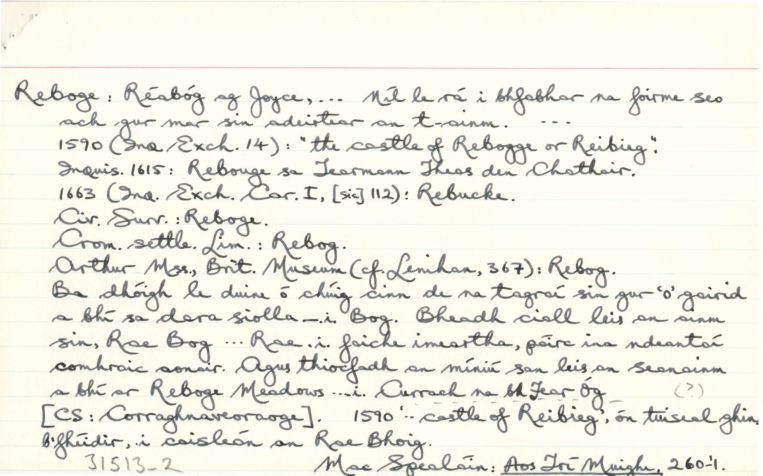 Reboge: Réabóg ag Joyce,... Níl le rá i bhfabhar na foirme seo
ach gur mar sin adeirtear an t-ainm. ...
1590 (Inq. Exch. 14): "the castle of Rebogge or Reibieg".
Inquis. 1615: Rebouge sa Tearmann Theas den Chathair.
1663 (Inq. Exch. Car. I, [sic] 112): Rebucke.
Civ. Surv.: Reboge.
Crom. settle. Lim.: Rebog.
Arthur Mss., Brit. Museum (cf. Lenihan, 367): Rebog.
Ba dhóigh le duine ó chúig cinn de na tagraí sin gur 'o' gairid
a bhí sa dara siolla — .i. Bog. Bheadh ciall leis an ainm
sin, Rae Bog ... Rae .i. faiche imeartha, páirc ina ndeantaí
comhraic aonair. Agus thiocfadh an míniú san leis an seanainm
a bhí ar Reboge Meadows ... .i. Currach na bhFear Óg (?)
[CS: Corraghnaveoraoge]. 1590 '.. castle of Reibieg', ón tuiseal ghin.
b'fhéidir, .i. caisleán an Rae Bhoig.
31513-2 Mac Spealáin: Aos Trí Muighe, 260-1.